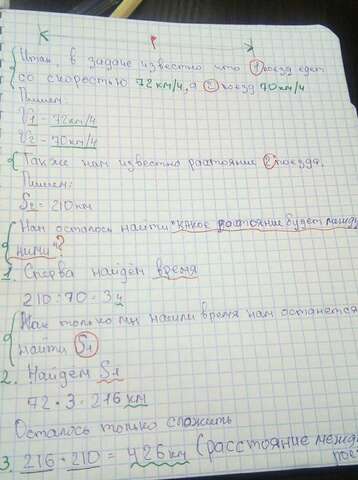 Итак, в задаче известно что 1 поезд едет
со скоростью 72км/ч, а 2 поезд 70км/ч
Пишем:
V1 = 72км/ч
V2 = 70км/ч
Также нам известно растояние 2 поезда.
Пишем:
S2 = 210км
Нам осталось найти "какое растояние будет между
ними"?
1. Сперва найдём время
210:70=3ч
Как только мы нашли время нам останется
найти S1
2. Найдём S1
72·3=216км
Осталось только сложить
3. 216+210=426км (расстояние между